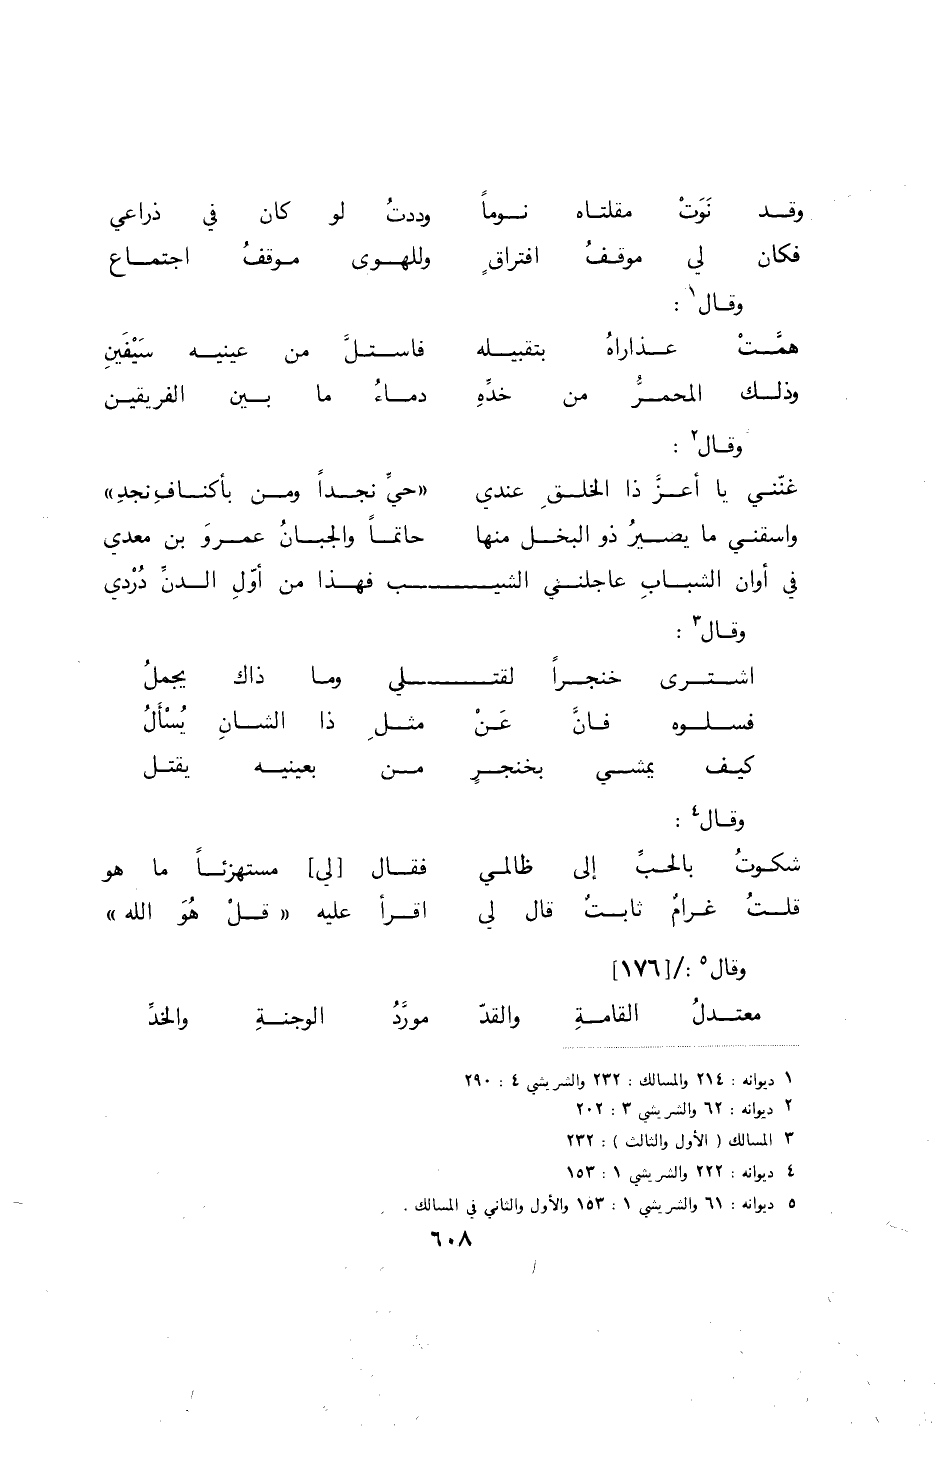 وقد نَوَتْ مقلتاه نوماً وددتُ لو كان في ذراعي
فكان لي موقفُ افتراقٍ وللهوى موقفُ اجتماع
وقال١ :
همَّتْ عذاراهُ بتقبيله فاستلَّ من عينيه سَيْفَينِ
وذلك المحمرُّ من خدِّهِ دماءُ ما بين الفريقين
وقال٢ :
غنّني يا أعزَّ ذا الخلقِ عندي «حيِّ نجداً ومن بأكنافِ نجدِ»
واسقني ما يصيرُ ذو البخل منها حاتماً والجبانُ عمروَ بن معدي
في أوان الشبابِ عاجلني الشيب فهذا من أوّلِ الدنِّ دُرْدي
وقال٣ :
اشترى خنجراً لقتلي وما ذاك يجملُ
فسلوه فانَّ عَنْ مثلِ ذا الشانِ يُسْأَلُ
كيف يمشي بخنجرٍ من بعينيه يقتل
وقال٤ :
شكوتُ بالحبِّ إلى ظالمي فقال [لي] مستهزئاً ما هو
قلتُ غرامٌ ثابتٌ قال لي اقرأ عليه « قلْ هُوَ الله »
وقال٥ :/[١٧٦]
معتدلُ القامةِ والقدّ مورَّدُ الوجنةِ والخدِّ
١ ديوانه : ٢١٤ والمسالك : ٢٣٢ والشريشي ٤ : ٢٩٠
٢ ديوانه : ٦٢ والشريشي ٣ : ٢٠٢
٣ المسالك ( الأول والثالث ) : ٢٣٢
٤ ديوانه : ٢٢٢ والشريشي ١ : ١٥٣
٥ ديوانه : ٦١ والشريشي ١ : ١٥٣ والأول والثاني في المسالك .
٦٠٨